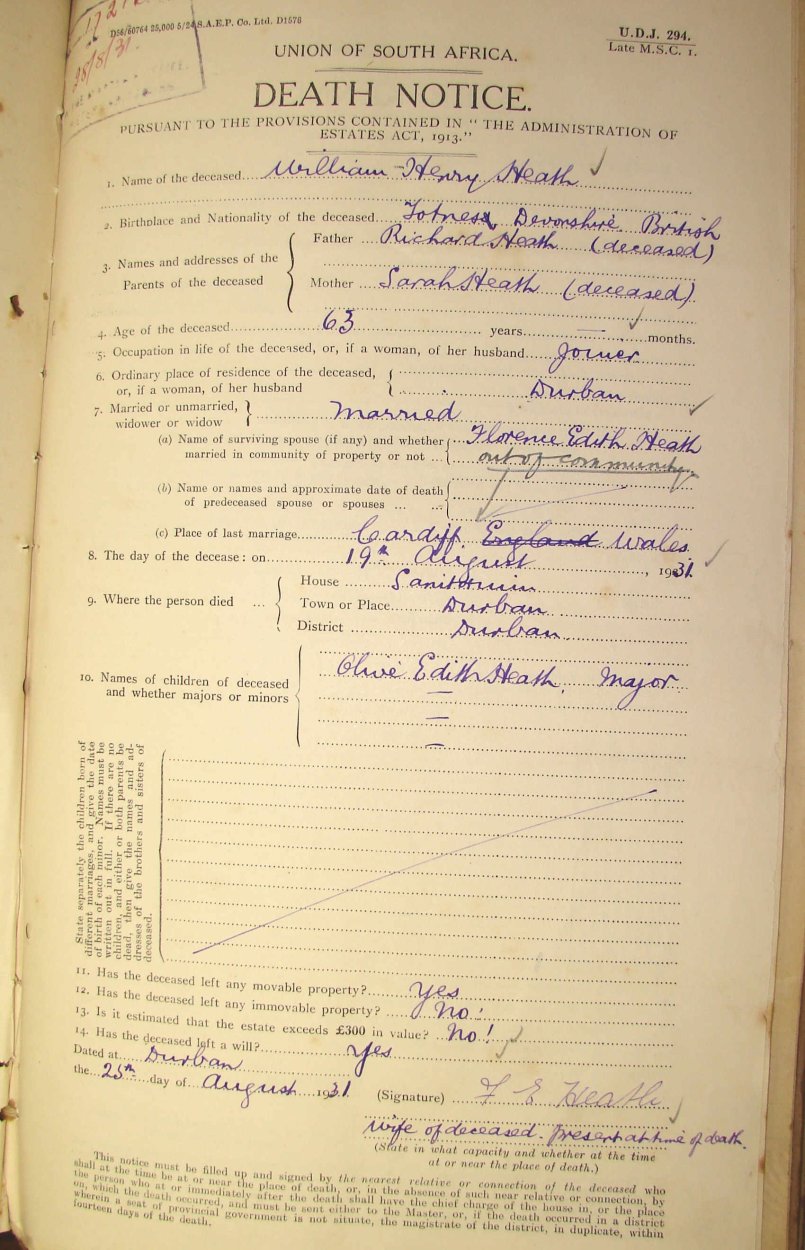 172
28/8/31
D56/50764 25,000 5/24 S.A.E.P. Co. Ltd. D1578
U.D.J. 294.
Late M.S.C. 1.
UNION OF SOUTH AFRICA.
DEATH NOTICE.
PURSUANT TO THE PROVISIONS CONTAINED IN "THE ADMINISTRATION OF
ESTATES ACT, 1913."
1. Name of the deceased William Henry Heath
2. Birthplace and Nationality of the deceased Totness Devonshire British
3. Names and addresses of the Parents of the deceased
Father Richard Heath (deceased)
Mother Sarah Heath (deceased)
4. Age of the deceased 63 years — months.
5. Occupation in life of the deceased, or, if a woman, of her husband Joiner
6. Ordinary place of residence of the deceased,
or, if a woman, of her husband Durban
7. Married or unmarried,
widower or widow Married
(a) Name of surviving spouse (if any) and whether Florence Edith Heath
married in community of property or not out of community
(b) Name or names and approximate date of death
of predeceased spouse or spouses
(c) Place of last marriage Cardiff England Wales
8. The day of the decease: on 19th August, 1931
9. Where the person died
House Sanitorium
Town or Place Durban
District Durban
10. Names of children of deceased
and whether majors or minors
Olive Edith Heath, Major
—
—
—
State separately the children born of
different marriages, and give the date
of birth of each minor. Names must be
written out in full. If there are no
children, and either or both parents be
dead, then give the names and ad-
dresses of the brothers and sisters of
deceased.
11. Has the deceased left any movable property? Yes
12. Has the deceased left any immovable property? No!
13. Is it estimated that the estate exceeds £300 in value? No!
14. Has the deceased left a will? Yes
Dated at Durban
the 25th day of August 1931
(Signature) F E Heath
Wife of deceased. Present at time of death.
(State in what capacity and whether at the time
at or near the place of death.)
This notice must be filled up and signed by the nearest relative or connection of the deceased who
shall at the time be at or near the place of death, or, in the absence of such near relative or connection, by
the person who at or immediately after the death shall have the chief charge of the house in, or the place
on, which the death occurred, and must be sent either to the Master, or, if the death occurred in a district
wherein a seat of provincial government is not situate, the magistrate of the district, in duplicate, within
fourteen days of the death.